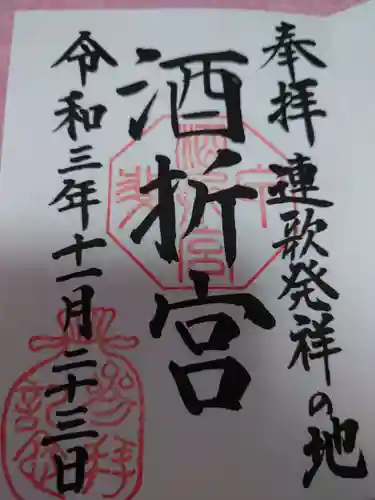 奉拝 連歌発祥の地
酒折宮
令和三年十一月二十三日